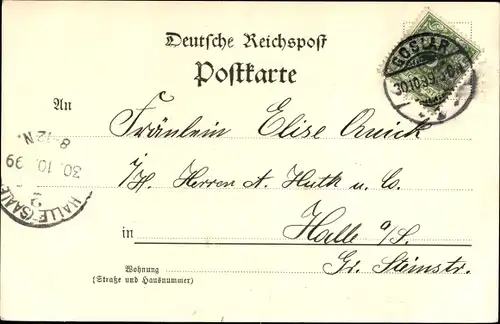 Deutsche Reichspost
Postkarte
GOSLAR
30.10.99
An
Fräulein Elise Quick
I/H. Herren A. Huth u. Co.
in
Halle a/S.
Gr. Steinstr.
Wohnung
(Straße und Hausnummer)
HALLE (SAALE)
2
30.10.99
8-12N.